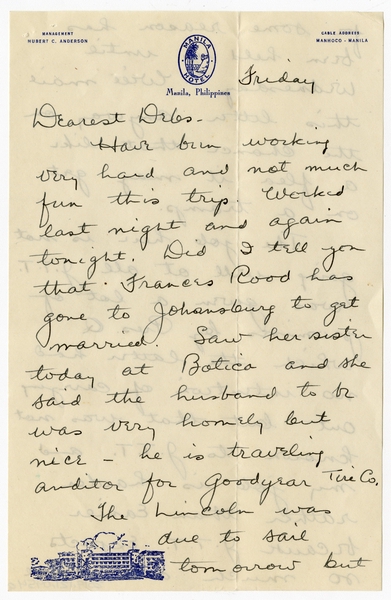 MANAGEMENT
HUBERT C. ANDERSON
MANILA
HOTEL
Manila, Philippines
CABLE ADDRESS:
MANHOCO - MANILA
Friday
Dearest Debs -
Have been working
very hard and not much
fun this trip. Worked
last night and again
tonight. Did I tell you
that Frances Rood has
gone to Johansburg to get
married. Saw her sister
today at Botica and she
said the husband to be
was very homely but
nice - he is traveling
auditor for Goodyear Tire Co.
The Lincoln was
due to sail
tomorrow but